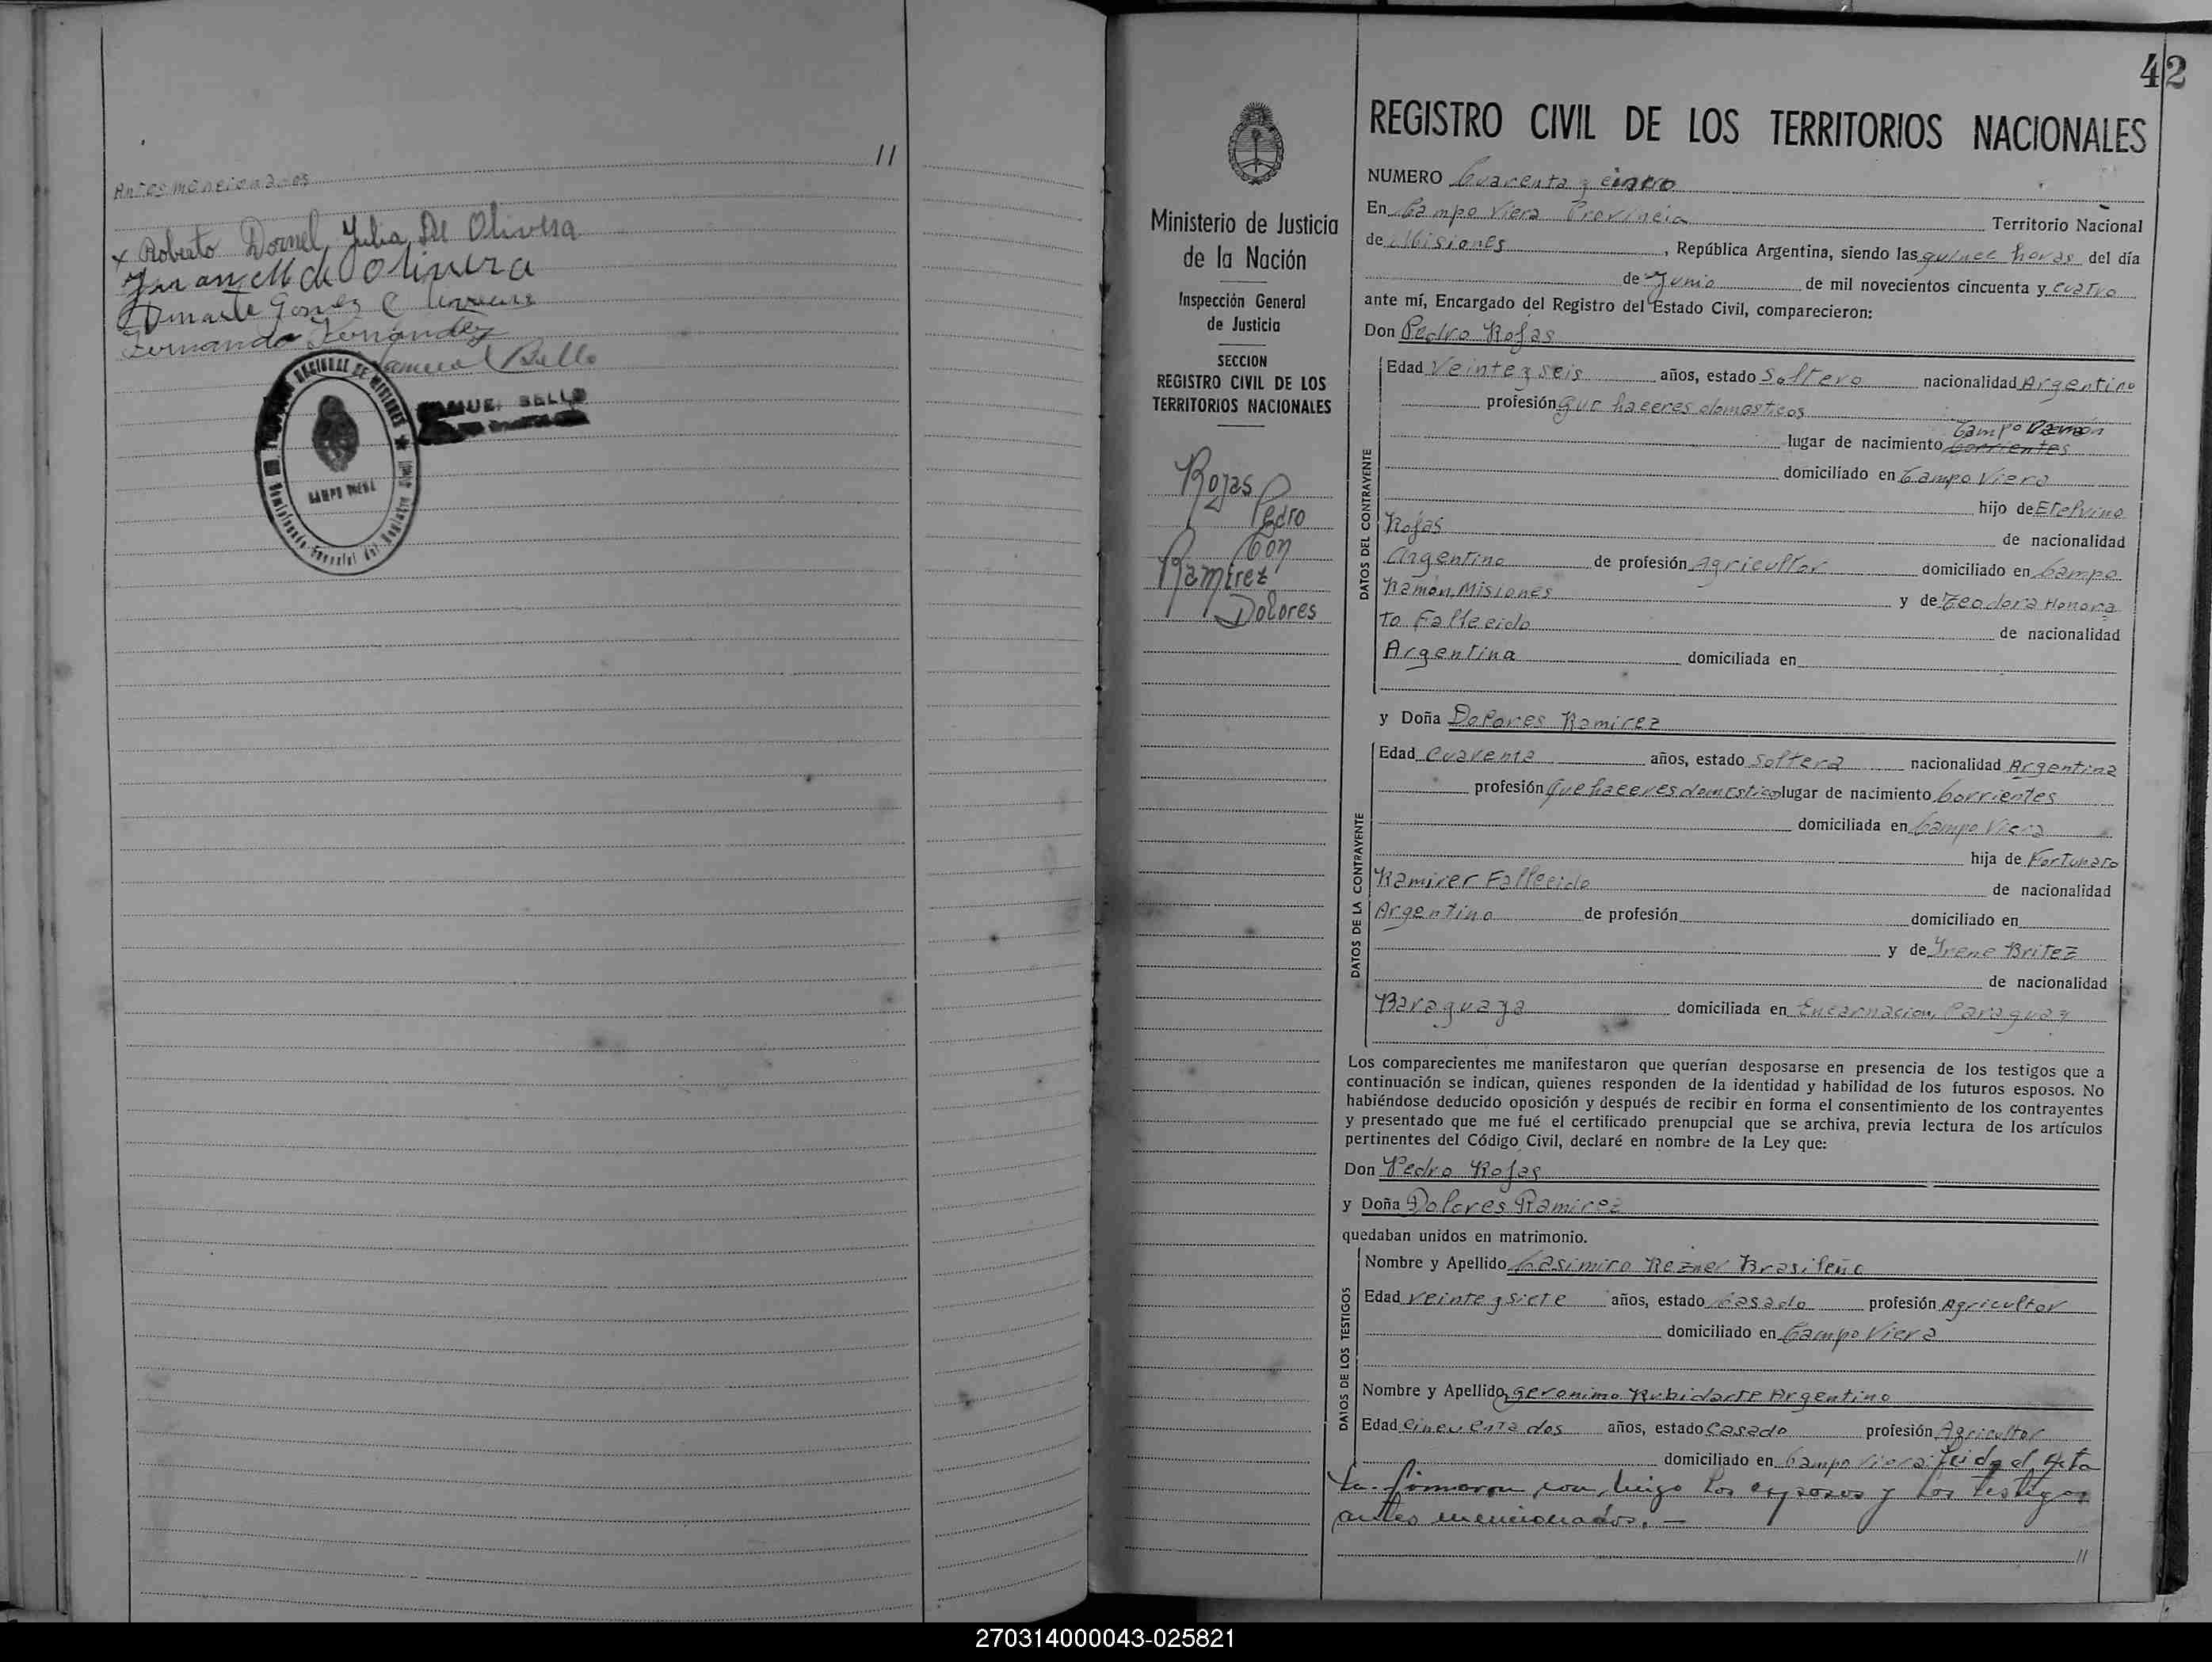 11
Antes mencionados
x Roberto Dornel Julia De Olivera
Juan M de Olivera
Duarte Gomez C
Fernando Fernandez
Samuel Bello
CAMPO VIERA
SAMUEL BELLO
42
Ministerio de Justicia
de la Nación
Inspección General
de Justicia
SECCION
REGISTRO CIVIL DE LOS
TERRITORIOS NACIONALES
Rojas
Pedro
Con
Ramirez
Dolores
REGISTRO CIVIL DE LOS TERRITORIOS NACIONALES
NUMERO Cuarenta y cinco
En Campo Viera Provincia Territorio Nacional
de Misiones, República Argentina, siendo las quince horas del día
de Junio de mil novecientos cincuenta y cuatro
ante mí, Encargado del Registro del Estado Civil, comparecieron:
Don Pedro Rojas
DATOS DEL CONTRAYENTE
Edad Veinte y seis años, estado Soltero nacionalidad Argentino
profesión que haceres domesticos
Campo Ramón
lugar de nacimiento Corrientes
domiciliado en Campo Viera
hijo de Etelvino
Rojas de nacionalidad
Argentino de profesión Agricultor domiciliado en Campo
Ramón, Misiones y de Teodora Honora
to Fallecido de nacionalidad
Argentina domiciliada en
y Doña Dolores Ramirez
DATOS DE LA CONTRAYENTE
Edad Cuarenta años, estado Soltera nacionalidad Argentina
profesión Que haceres domestico lugar de nacimiento Corrientes
domiciliada en Campo Viera
hija de Fortunato
Ramirer Fallecido de nacionalidad
Argentino de profesión domiciliado en
y de Yrene Britez
de nacionalidad
Paraguaya domiciliada en Encarnacion, Paraguay
Los comparecientes me manifestaron que querían desposarse en presencia de los testigos que a
continuación se indican, quienes responden de la identidad y habilidad de los futuros esposos. No
habiéndose deducido oposición y después de recibir en forma el consentimiento de los contrayentes
y presentado que me fué el certificado prenupcial que se archiva, previa lectura de los artículos
pertinentes del Código Civil, declaré en nombre de la Ley que:
Don Pedro Rojas
y Doña Dolores Ramirez
quedaban unidos en matrimonio.
DATOS DE LOS TESTIGOS
Nombre y Apellido Casimiro Rezner Brasileño
Edad veinte y siete años, estado Casado profesión Agricultor
domiciliado en Campo Viera
Nombre y Apellido, Geronimo Rubidarte Argentino
Edad Cincuenta dos años, estado Casado profesión Agricultor
domiciliado en Campo Viera Leida el Acta
la firmaron con migo los esposos y los testigos
antes mencionados. —
11
270314000043-025821